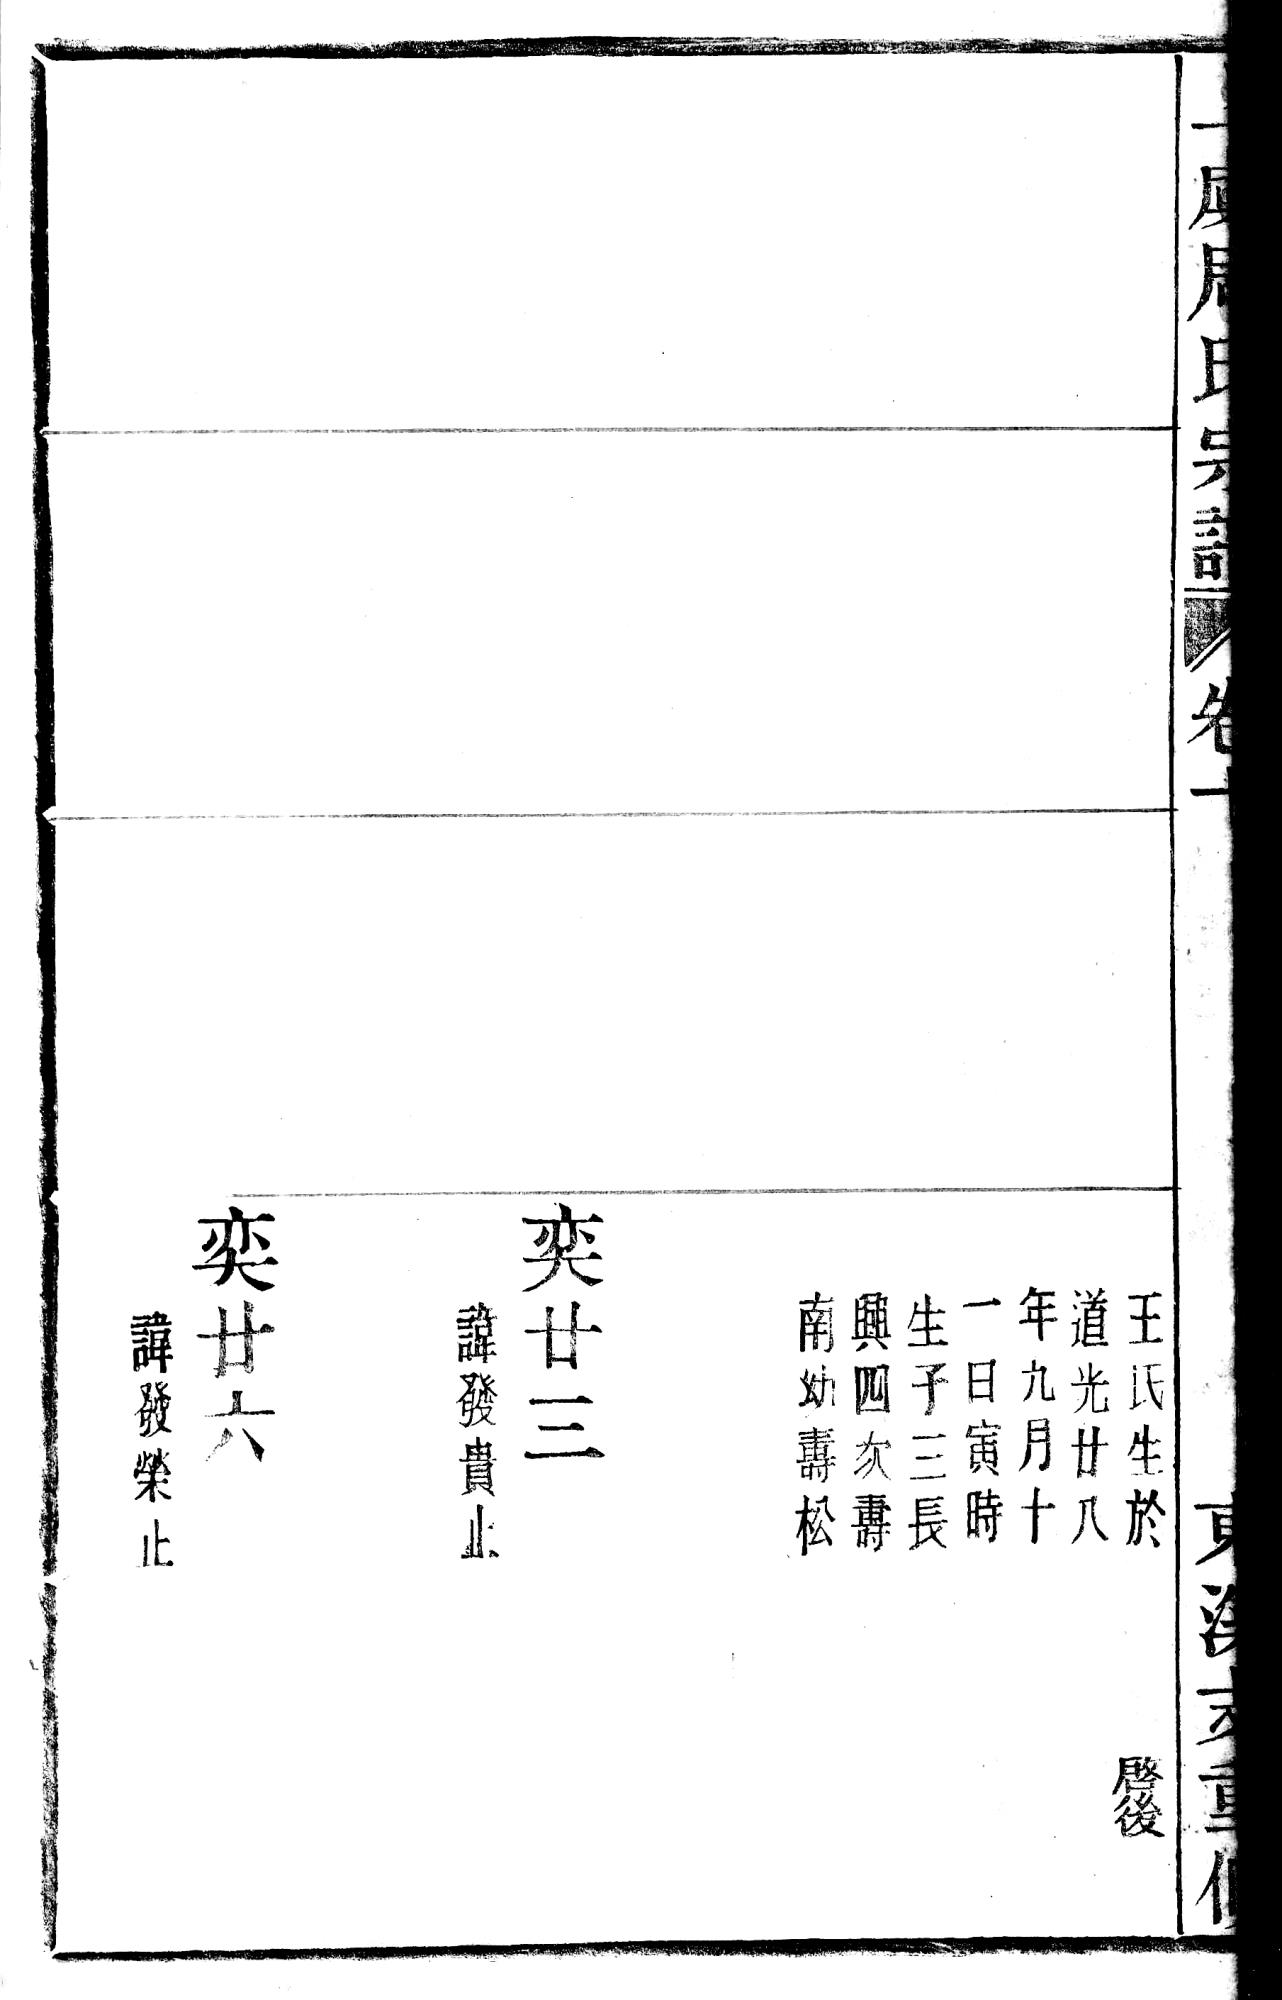 氏宗譜 卷
重修
王氏生於
道光廿八
年九月十
一日寅時
生子三長
興四次壽
南幼壽松
啓後
奕廿三
諱發貴止
奕廿六
諱發榮止